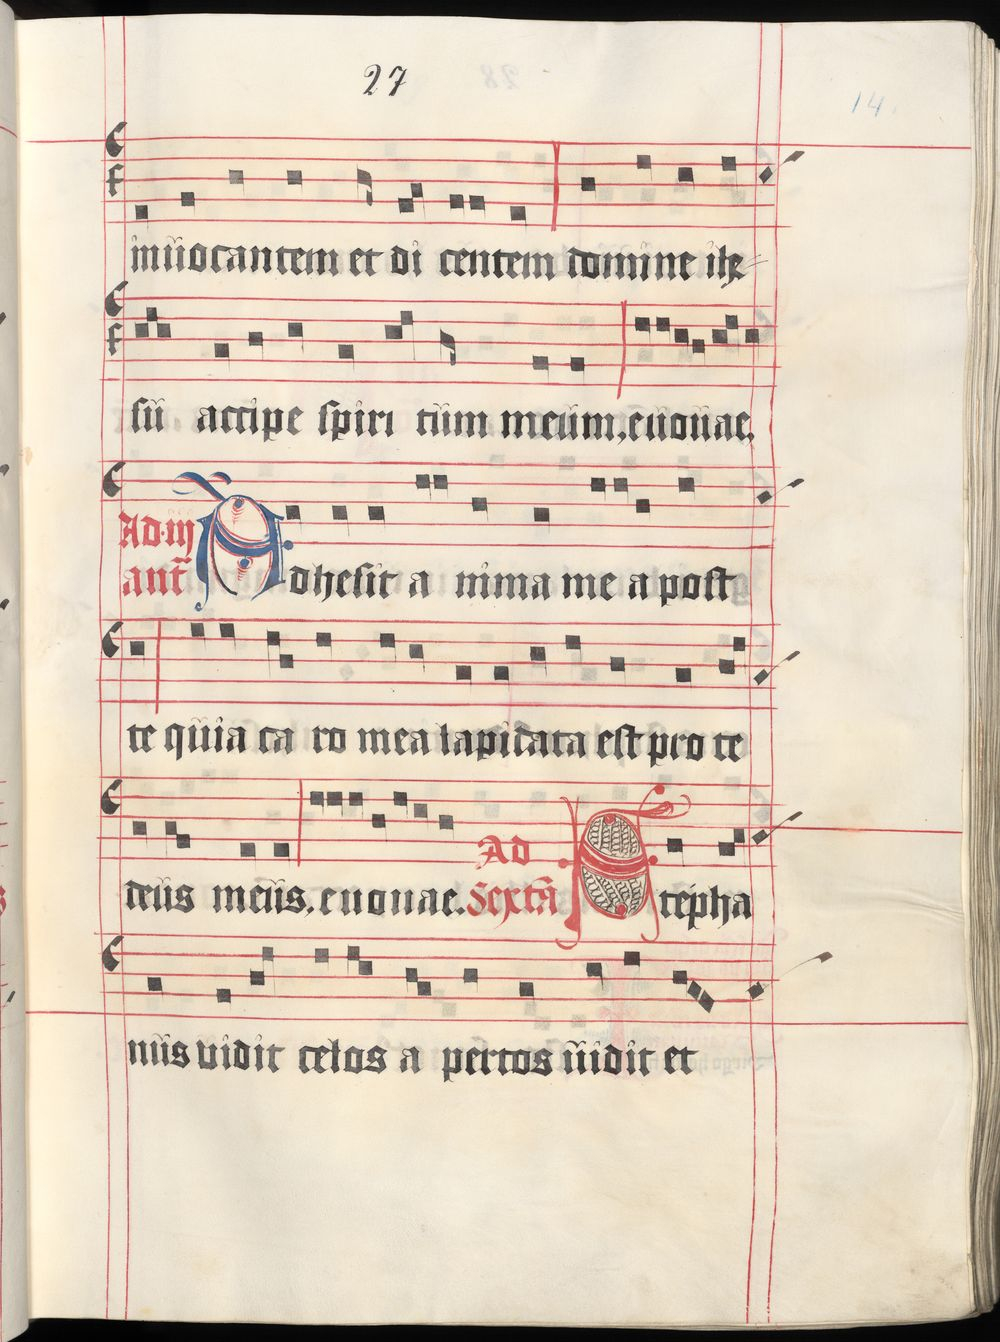 27
14
inuocantem et di centem domine ihe
su accipe spiri tum meum. euouae.
Ad iij
ant̄ Adhesit a nima me a post
te quia ca ro mea lapidata est pro te
deus meus. euouae. Ad
Sextā Stepha
nus vidit celos a pertos uidit et